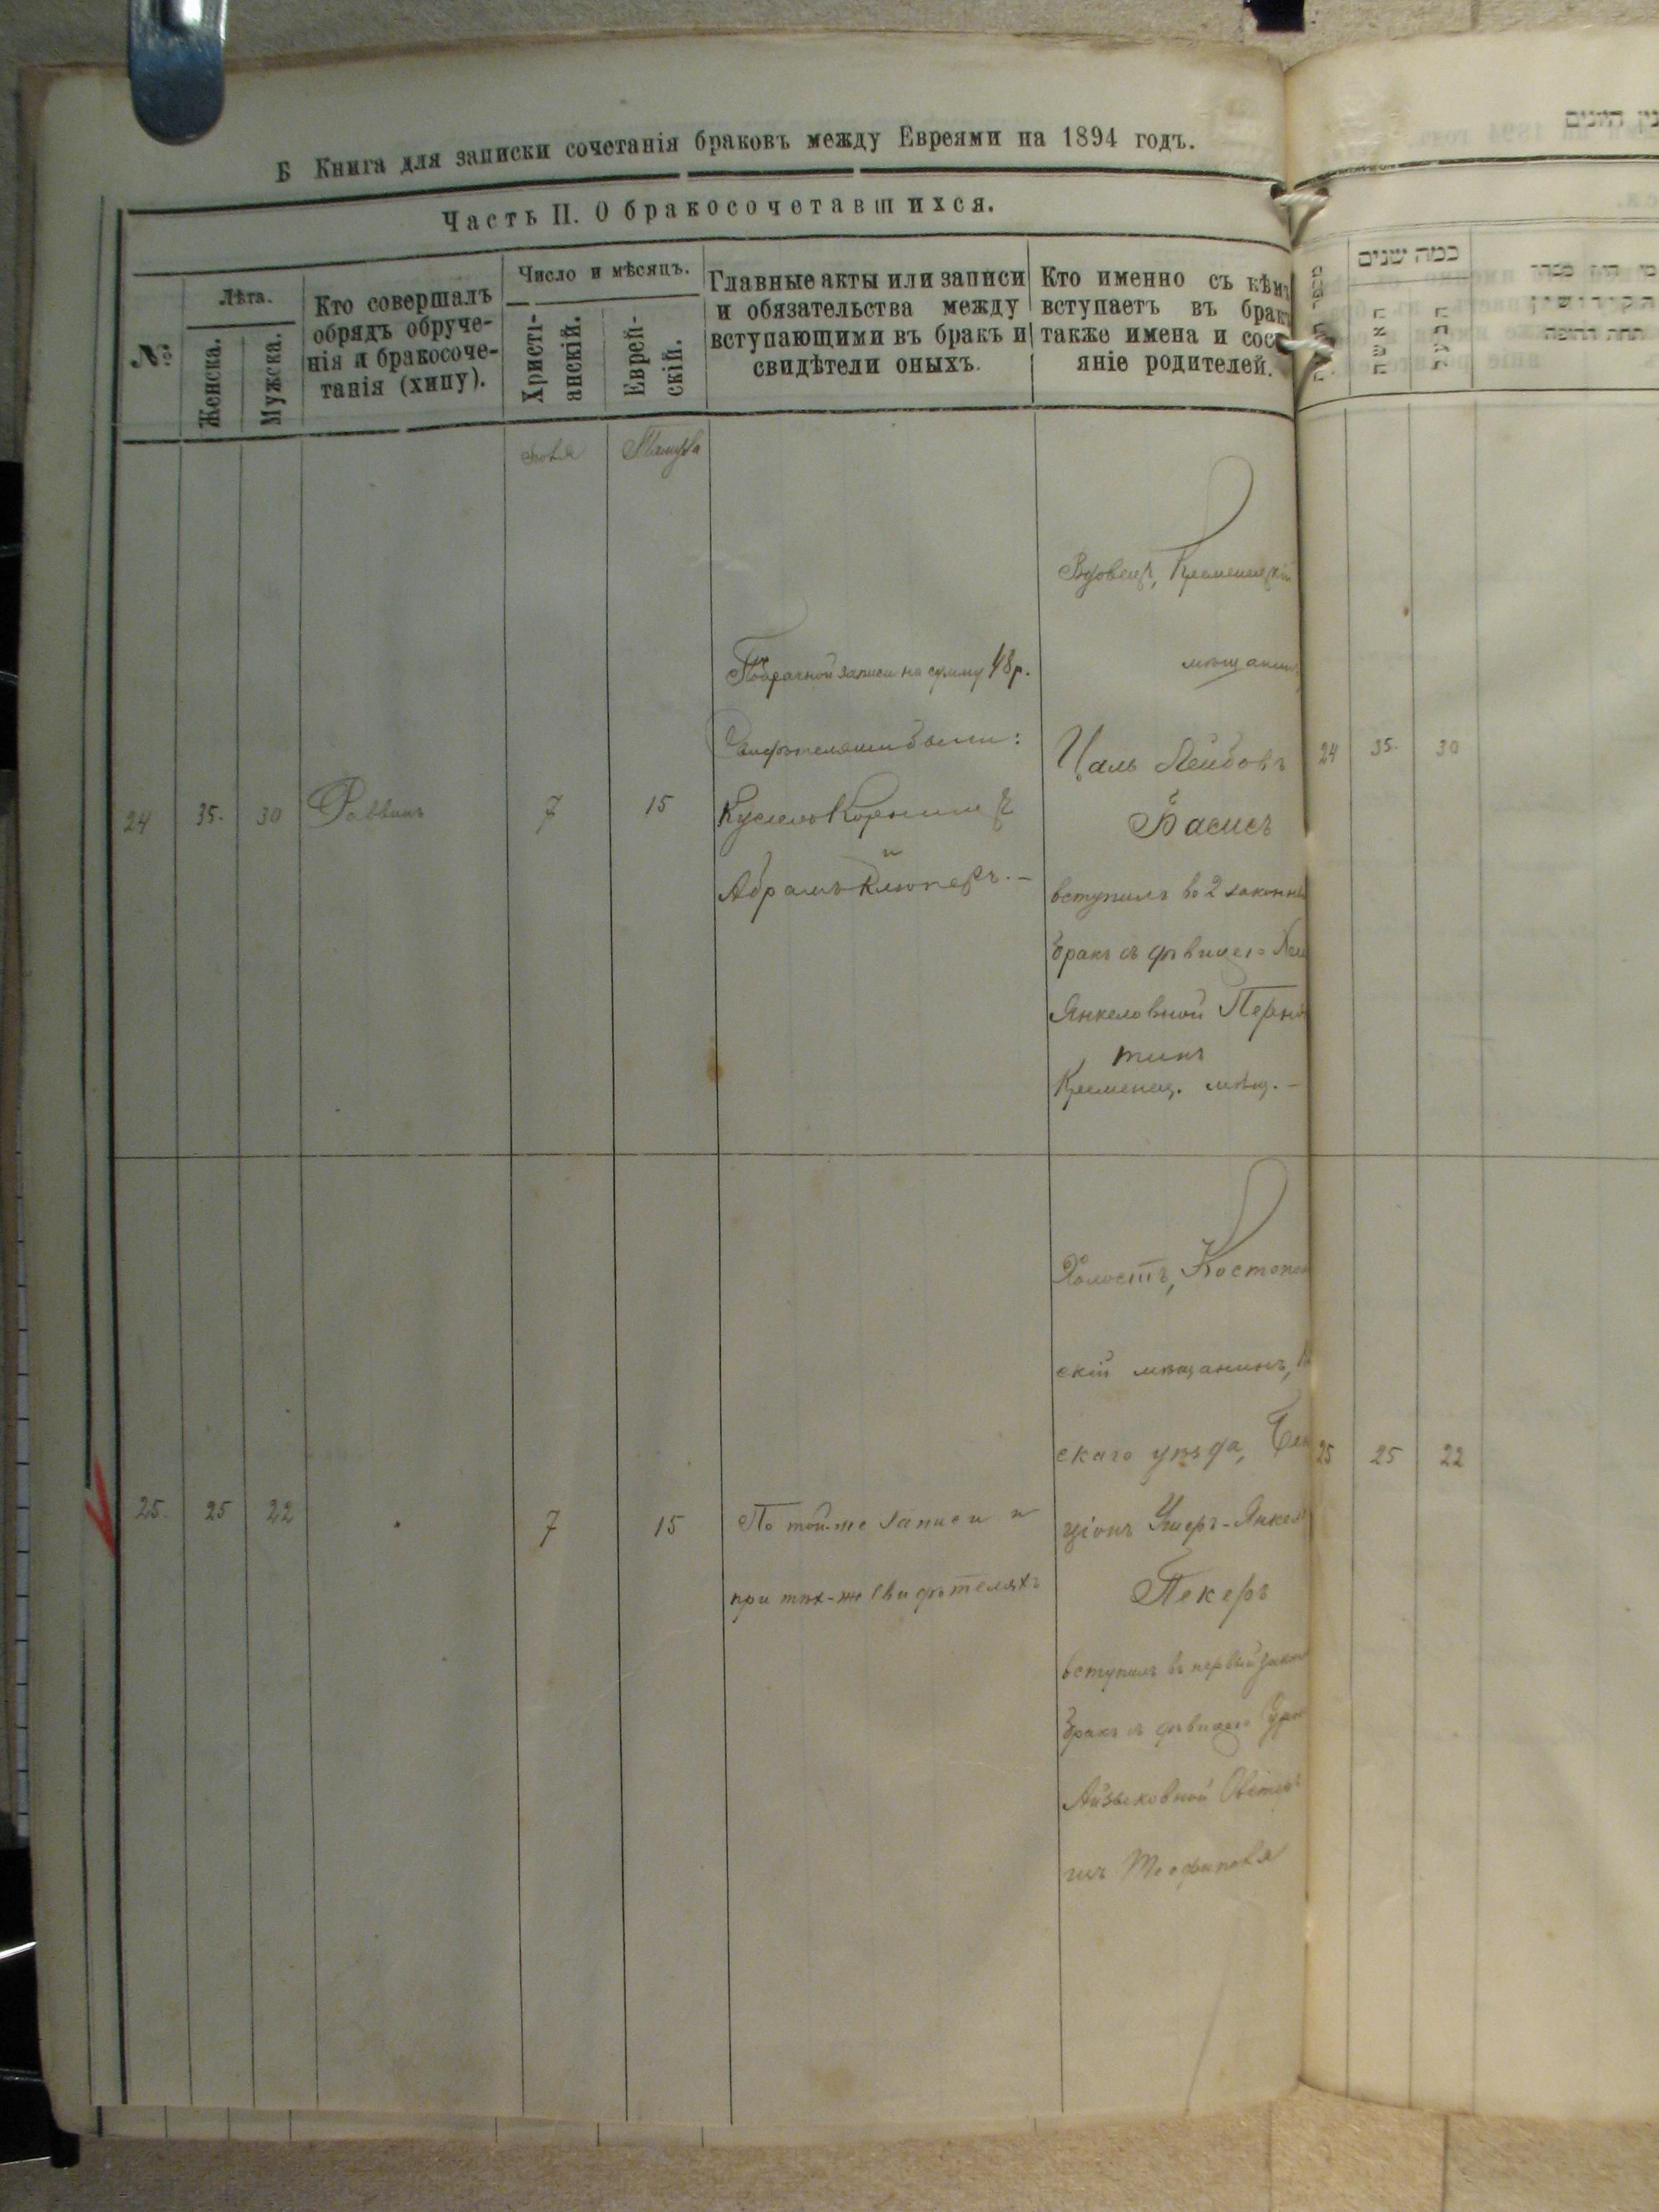 Б Книга для записки сочетанія браковъ между Евреями на 1894 годъ.
Часть II. О бракосочетавшихся.
№
Лѣта.
Женска.
Мужска.
Кто совершалъ
обрядъ обруче-
нія и бракосоче-
танія (хипу).
Число и мѣсяцъ.
Христі-
анскій.
Еврей-
скій.
Главные акты или записи
и обязательства между
вступающими въ бракъ и
свидѣтели оныхъ.
Кто именно съ кѣмъ
вступаетъ въ бракъ
также имена и сос
яніе родителей.
כמה שנים
Іюля
Тамуза
24
35.
30
Раввинъ
7
15
По брачной записи на сумму 48 р.
Свидѣтелями были:
и
Абрамъ Клюперъ. —
Вдовецъ, Кременецкій
мѣщанин
Цаль Лейбовъ
Басисъ
вступилъ во 2 законны
бракъ съ дѣвицею
Янкеловной
Кременец. мѣщ. —
24
35.
30
25.
25
22
7
15
По той-же записи и
при тѣх-же свидѣтеляхъ
Холостъ, Костопол
скій мѣщанинъ,
скаго уѣзда, Бен
ціонъ Ушеръ-Янкел
Пекеръ
вступилъ въ первый закон
бракъ съ дѣвицею
Айзыковной
Теофиполя
25
25
22